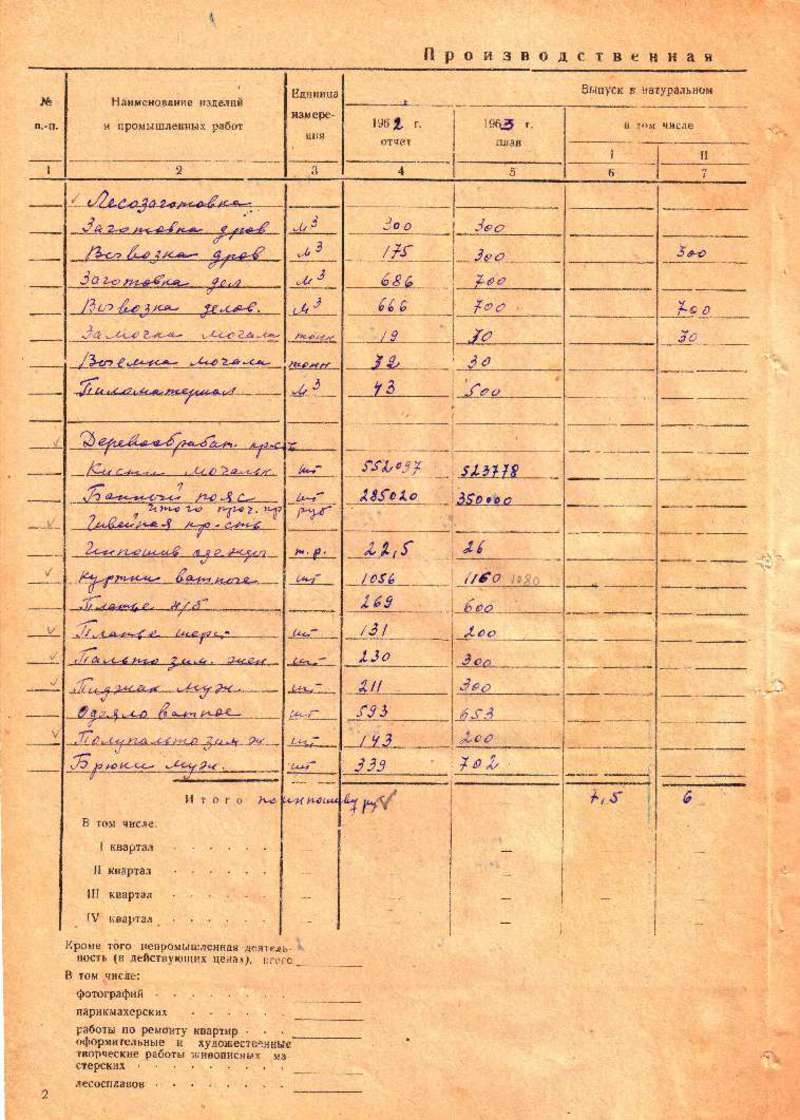 Производственная
№ п.-п. Наименование изделий и промышленных работ Единица измерения Выпуск в натуральном
1962 г. отчет 1963 г. план в том числе
I II
1 2 3 4 5 6 7
Лесозаготовка
Заготовка дров м3 300 300
Вывозка дров м3 175 300 300
Заготовка дел м3 686 700
Вывозка делов. м3 666 700 700
Замочка мочала тонн 19 30 30
Выемка мочала тонн 32 30
Пиломатериал м3 43 500
Деревообработ. пр-сть
Кисти мочальн шт 552097 523778
Банный пояс шт 285020 350000
Итого проч. пр руб
Швейная пр-сть
Инпошив одежды т.р. 22,5 26
Куртки ватные шт 1056 1160 1080
Платье х/б 269 600
Платье шерс шт 131 200
Пальто зим. жен шт 230 300
Пиджак муж. шт 211 300
Одеяло ватное шт 593 653
Полупальто зим. ж шт 143 200
Брюки муж. шт 339 702
Итого по инпошиву руб 7,5 6
В том числе:
I квартал . . . . . .
II квартал . . . . . .
III квартал . . . . . .
IV квартал . . . . . .
Кроме того непромышленная деятель-
ность (в действующих ценах), всего
В том числе:
фотографий . . . . . . . .
парикмахерских . . . . . . .
работы по ремонту квартир . . .
оформительные и художественные
творческие работы живописных ма
стерских . . . . . . . . .
лесосплавов . . . . . . . .
2